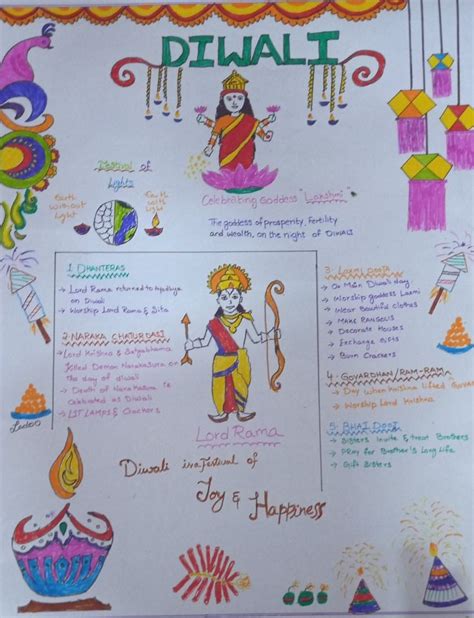 DIWALI
Festival of
Lights
Earth
without
Light
Earth
with
Light
Celebrating Goddess "Lakshmi"
The goddess of prosperity, Fertility
and wealth, on the night of DIWALI
1. DHANTERAS
→ Lord Rama returned to Ayodhya
on Diwali
→ Worship Lord Rama & Sita
2. NARAKA CHATURDASI
→ Lord Krishna & Satyabhama
Killed Demon Narakasura on
the day of diwali
→ Death of Narakasura is
celebrated as Diwali
→ LIT LAMPS & Crackers
Lord Rama
3. Laxmi Pooja
→ On Main Diwali day
→ Worship goddess Laxmi
→ Wear Beautiful clothes
→ MAKE RANGOLIS
→ Decorate Houses
→ Exchange Gifts
→ Burn Crackers
4. GOVARDHAN/RAM-RAM
→ Day when Krishna lifted
→ Worship Lord Krishna
5. BHAI DOOJ
→ Sisters Invite & treat Brothers
→ PRay for Brother's Long Life
→ Gift Sisters
Ladoo
Diwali is a Festival of
Joy & Happiness